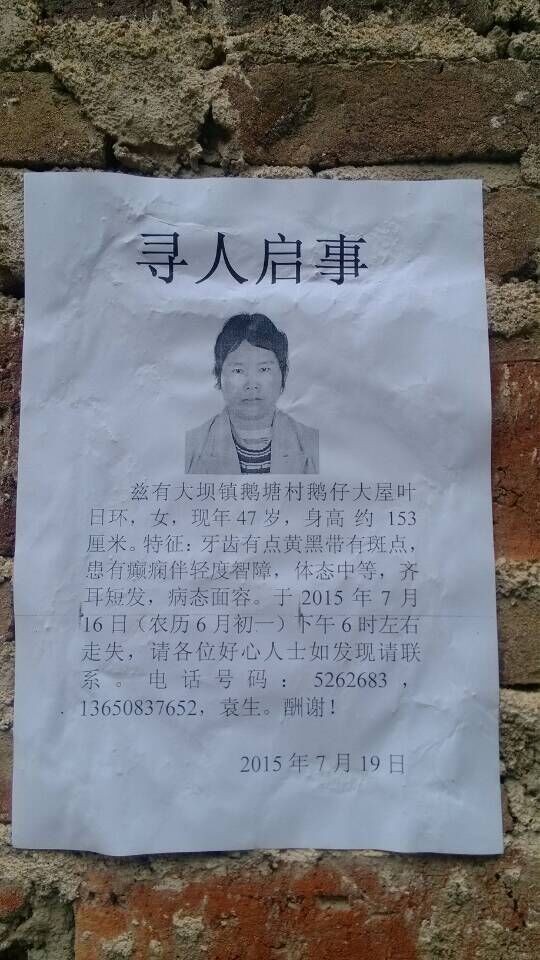 寻人启事
兹有大坝镇鹅塘村鹅仔大屋叶
日环，女，现年47岁，身高 约 153
厘米。特征：牙齿有点黄黑带有斑点，
患有癫痫伴轻度智障，体态中等，齐
耳短发，病态面容。于 2015 年 7 月
16 日（农历 6 月初一）下午 6 时左右
走失，请各位好心人士如发现请联
系。电话号码：5262683，
13650837652，袁生。酬谢！
2015 年 7 月 19 日